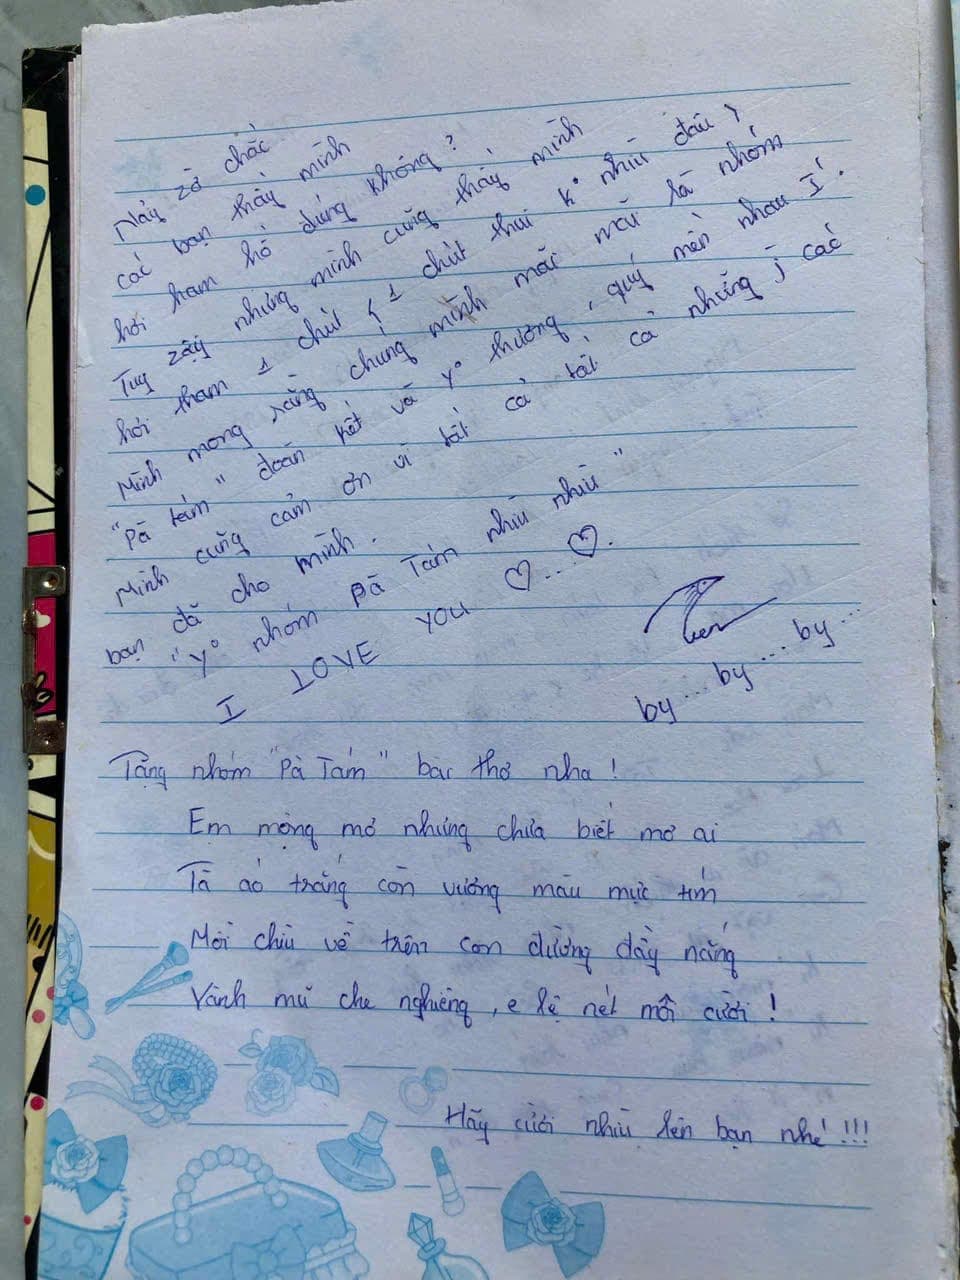 Nảy zờ chắc
các bạn thấy mình
hơi ham hố đúng không?
Tuy zậy nhưng mình cũng thấy mình
hơi tham 1 chút { 1 chút thui k° nhìu đâu }
Mình mong rằng chúng mình mãi mãi là nhóm
"Pà tám" đoàn kết và y° thương, quý mến nhau I'.
Mình cũng cảm ơn vì tất cả tất cả những j các
bạn đã cho mình.
"Y° nhóm Pà Tám nhìu nhìu"
I LOVE YOU ♡...♡.
by... by... by...
Tặng nhóm "Pà Tám" bài thơ nha!
Em mộng mơ nhưng chưa biết mơ ai
Tà áo trắng còn vương màu mực tím
Mỗi chìu về trên con đường đầy nắng
Vành mũ che nghiêng, e lệ nét môi cười!
Hãy cười nhìu lên bạn nhé!!!